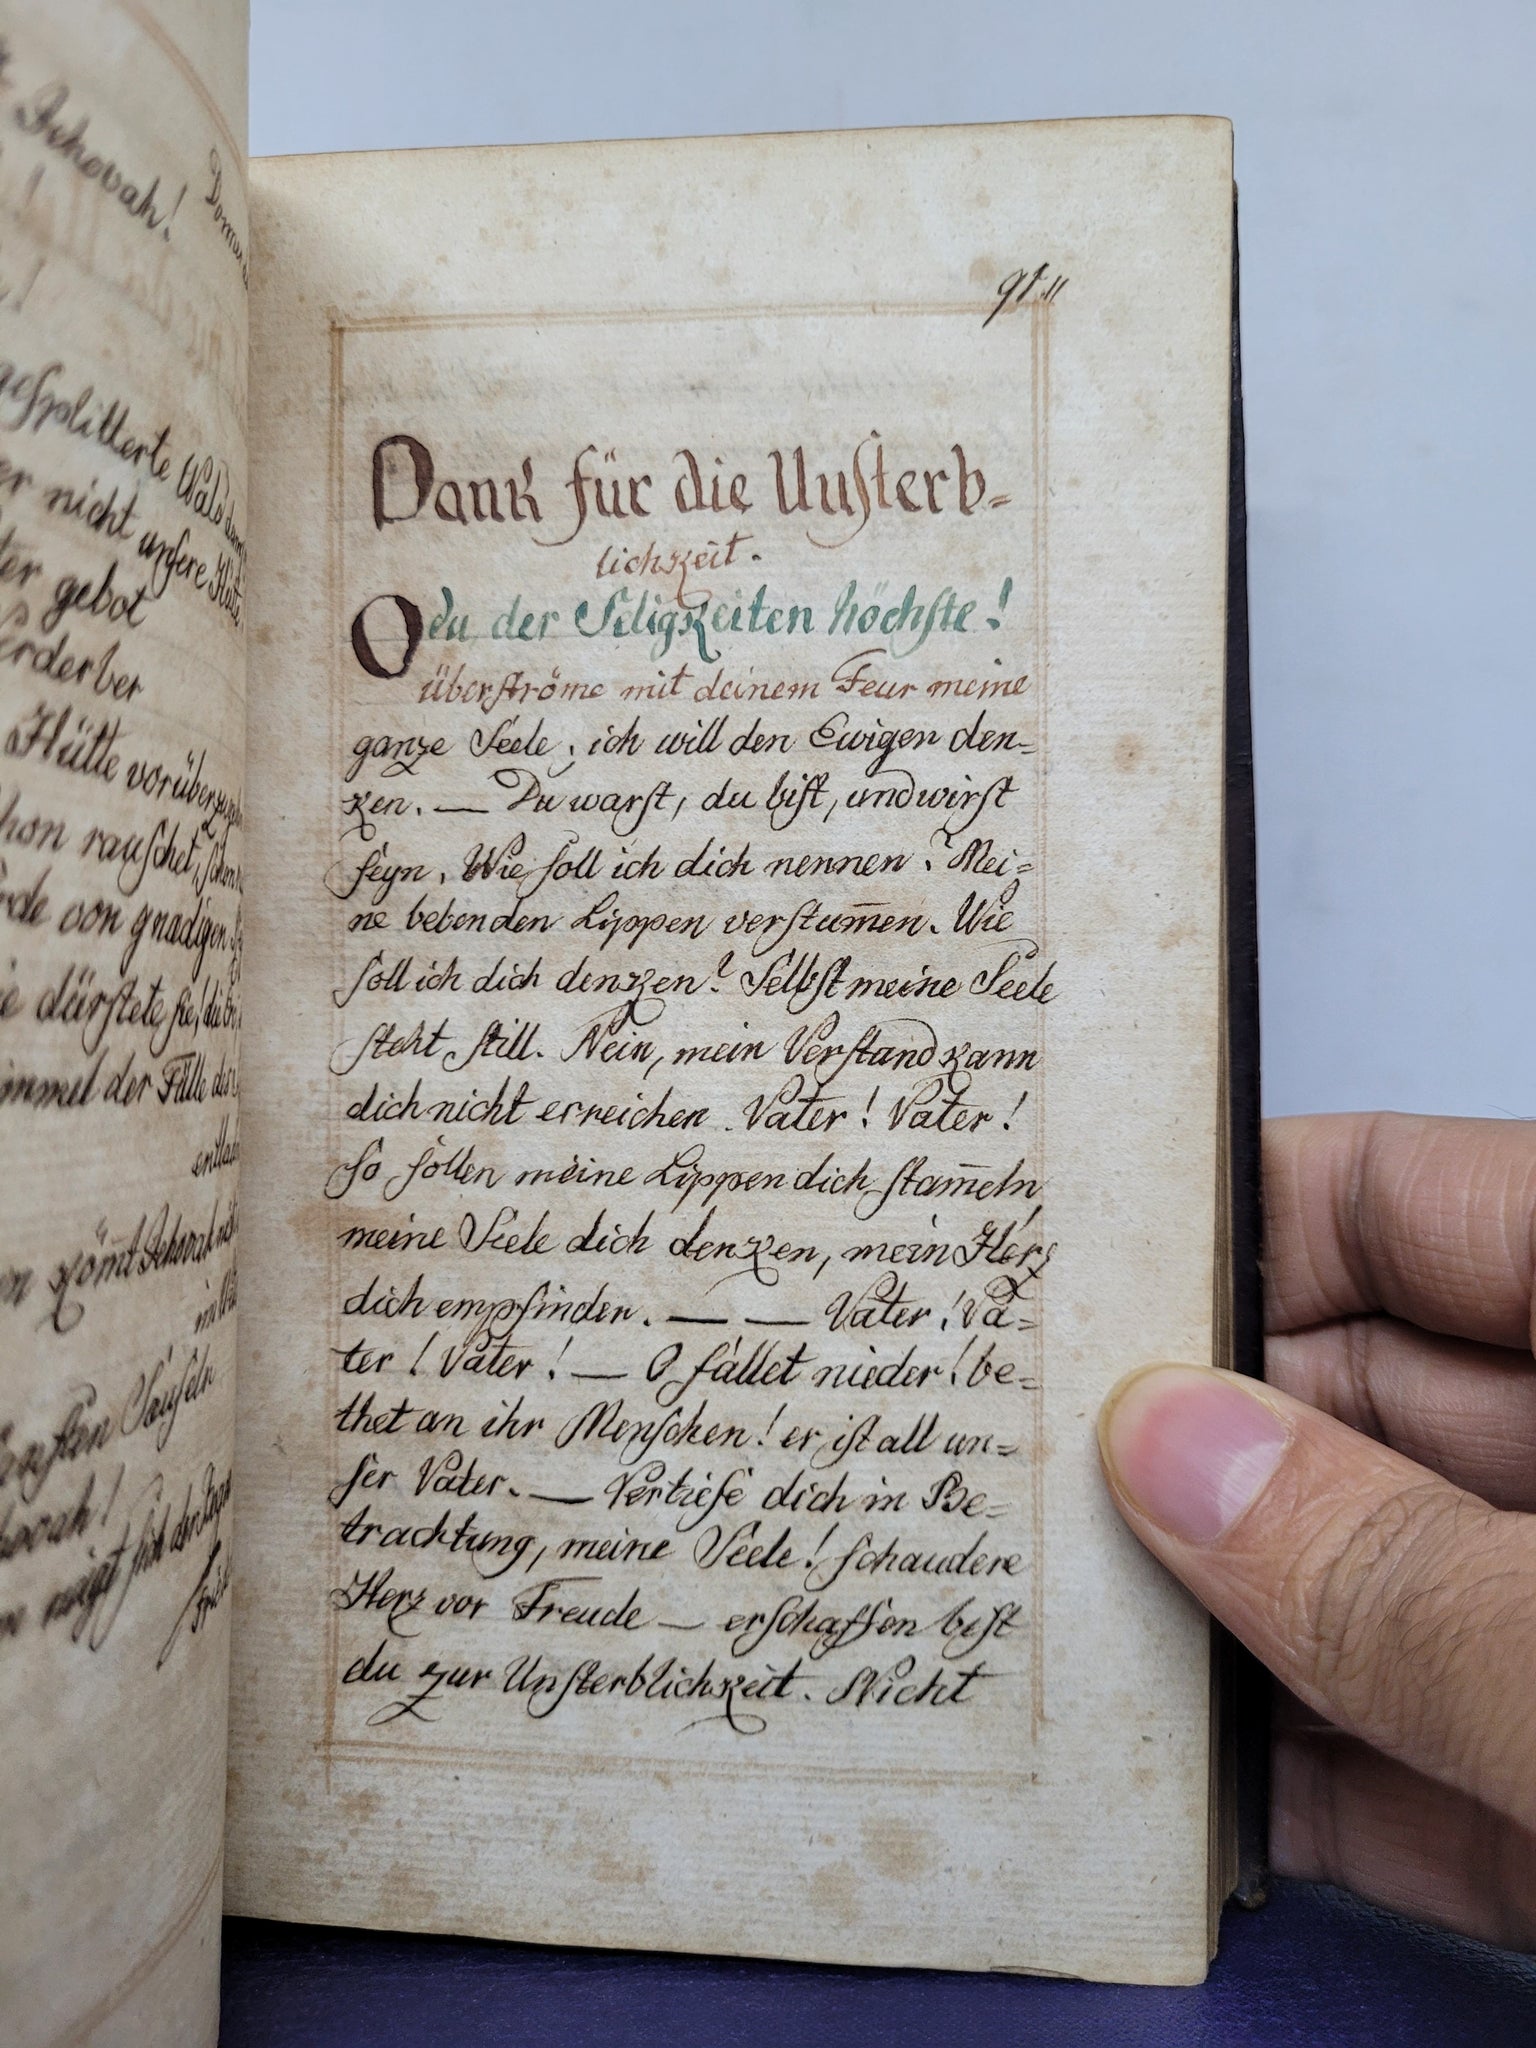 Jehovah!
!
gesplitterte Wald
er nicht unsere Hütte
gebot
Hütte
rauschet,
von gnädigen
dürstete sie,
der Fülle des
köm̅t Jehovah
Säuseln
neigt sich der
91.
Dank für die Unſterb=
lichkeit.
O du der Seligkeiten höchſte!
überſtröme mit deinem Feur meine
ganze Seele, ich will den Ewigen den=
ken. — Du warſt, du biſt, und wirſt
ſeyn. Wie ſoll ich dich nennen? Mei=
ne bebenden Lippen verſtum̅en. Wie
ſoll ich dich denken? Selbſt meine Seele
ſteht ſtill. Nein, mein Verſtand kann
dich nicht erreichen. Vater! Vater!
So ſollen meine Lippen dich ſtam̅eln,
meine Seele dich denken, mein Herz
dich empfinden. — — Vater! Va=
ter! Vater! — O fallet nieder! be=
thet an ihr Menſchen! er iſt all un=
ſer Vater. — Vertiefe dich in Be=
trachtung, meine Seele! ſchaudere
Herz vor Freude — erſchaffen biſt
du zur Unſterblichkeit. Nicht